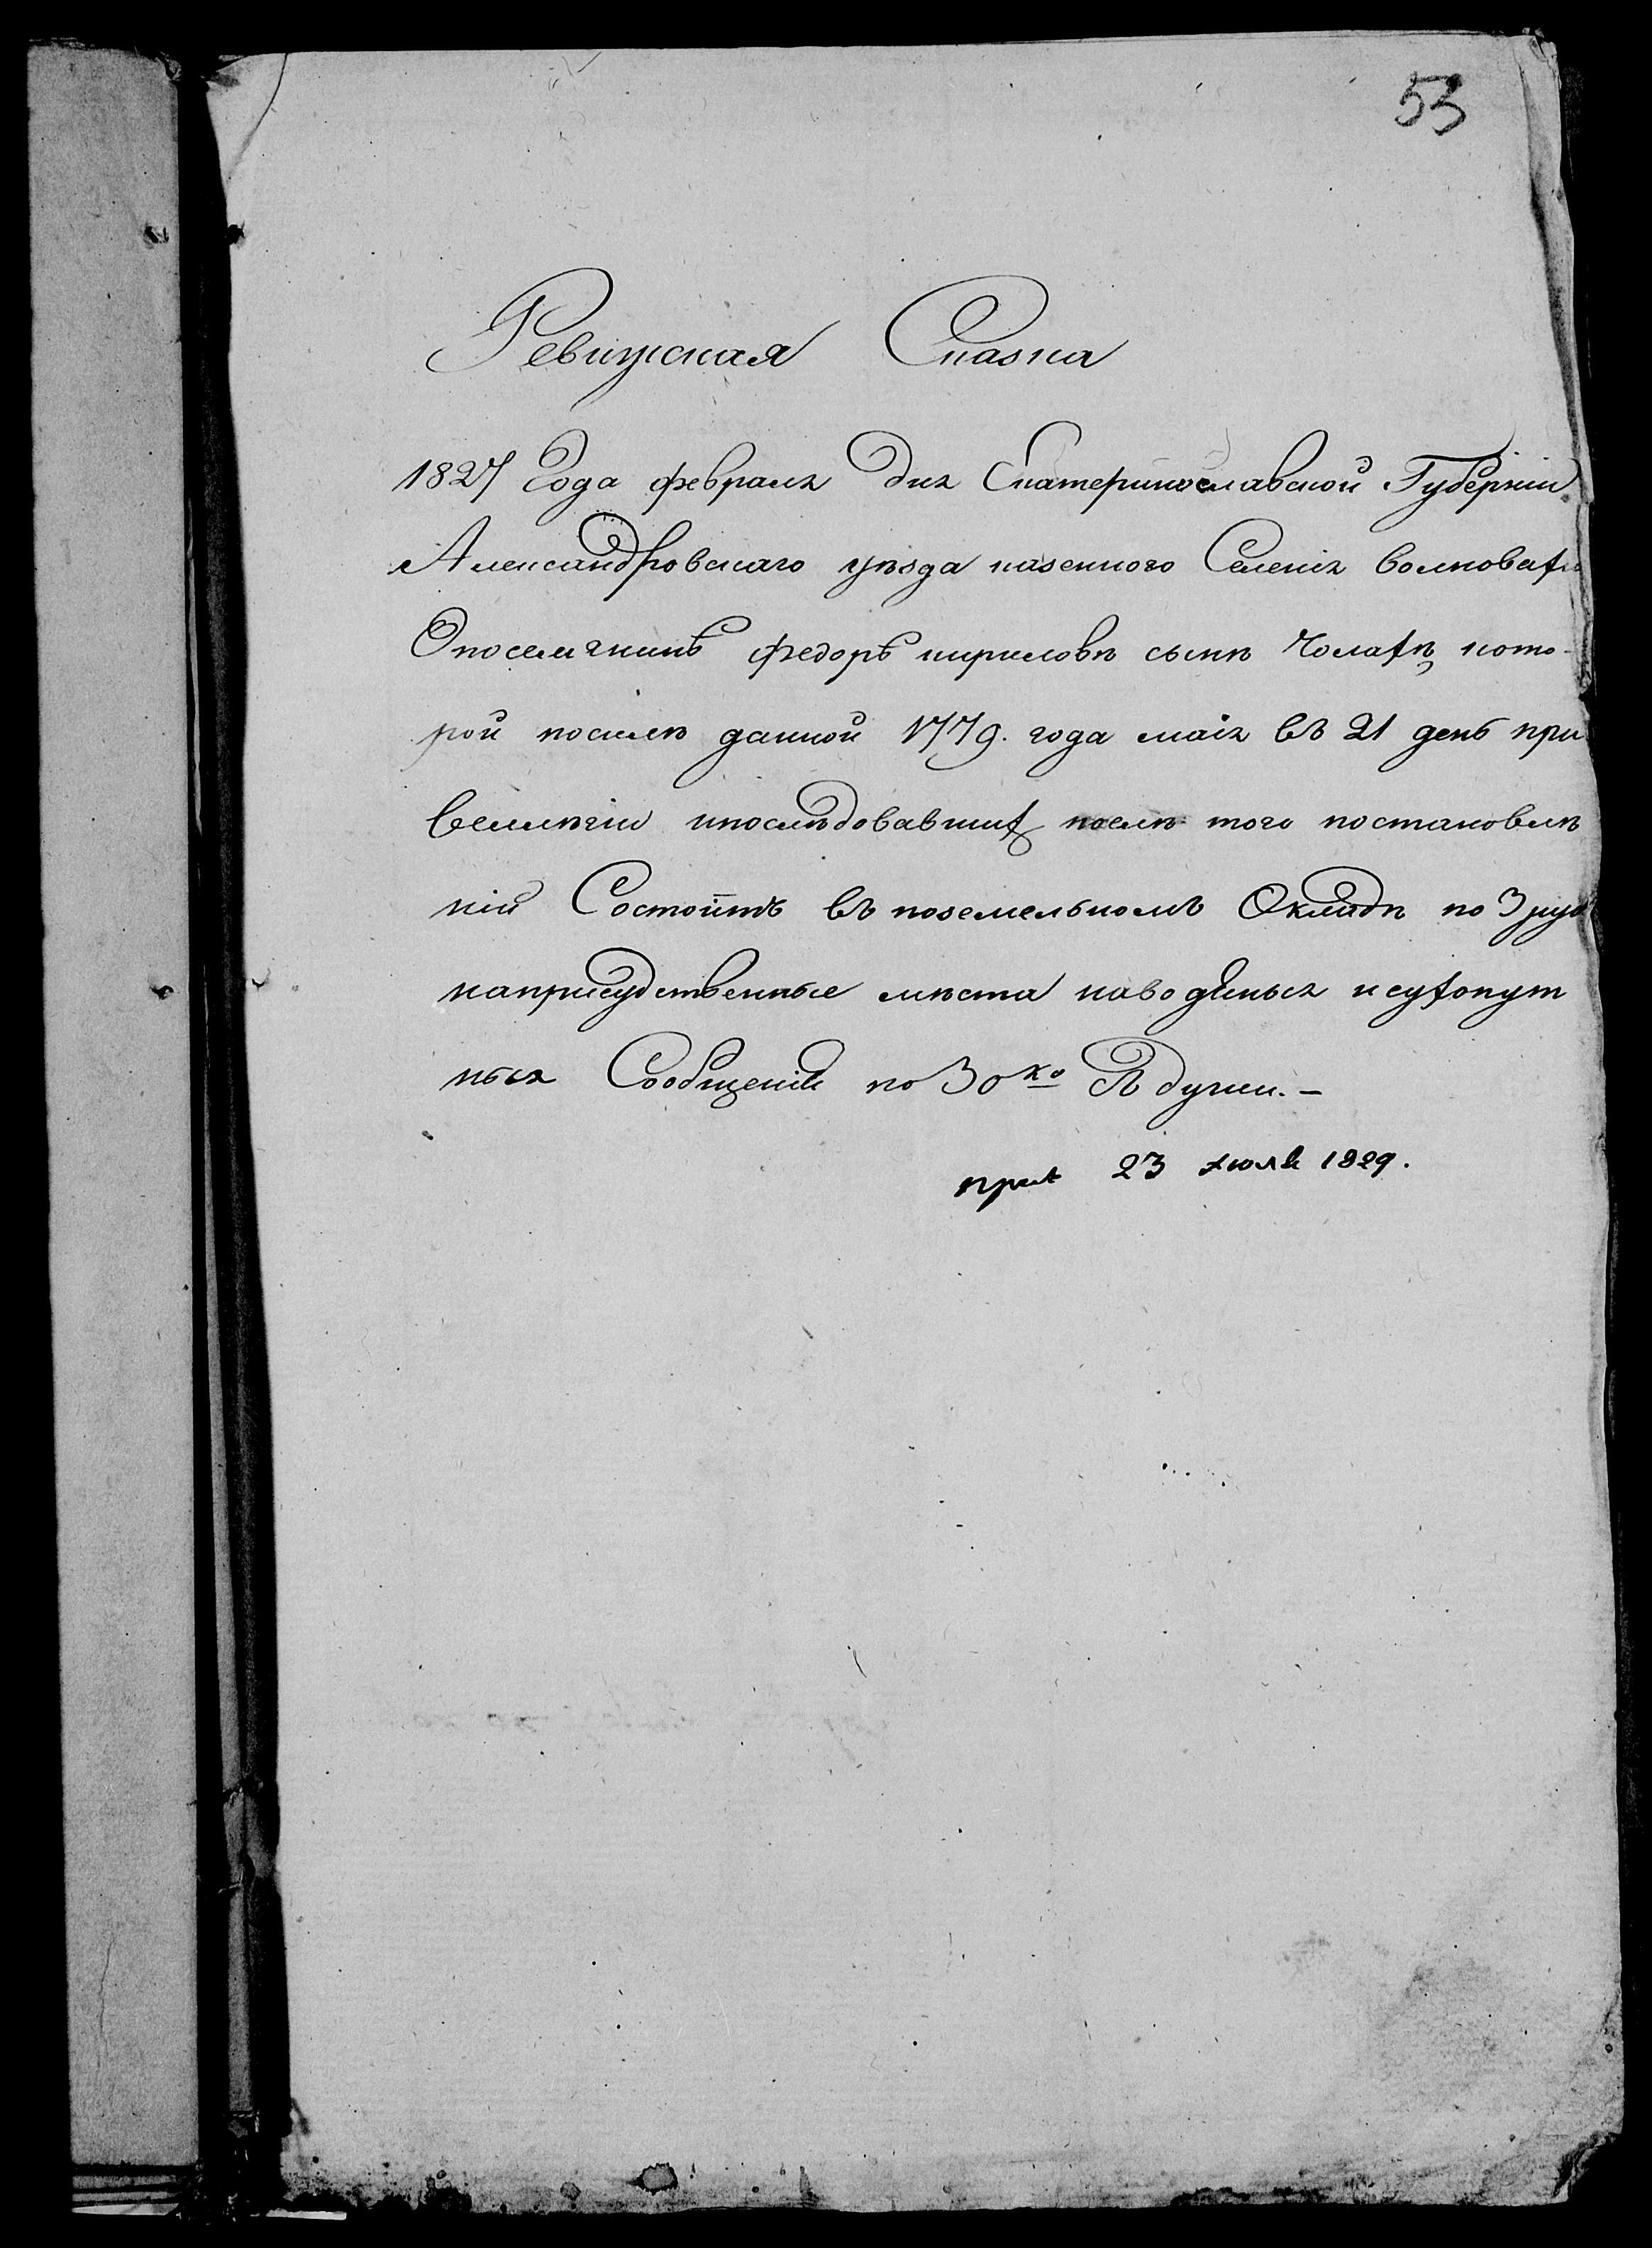 53
Ревижская Сказка
1827 Года февраля дня Екатеринославской Губернiи
Александровскаго уѣзда казенного Селенiя волновах
Федоръ кириловъ сынъ Чолахъ, кото-
рой посилѣ данной 1779. года маiя въ 21 день при
велегiи ипоследовавших послѣ того постановле
нiй Состоитъ въ поземельномъ Окладѣ по 3 руб
наприсудственные мѣста наводяныя исухопут
ныя Сообщенiи по 30 ко
23 Июля 1829.